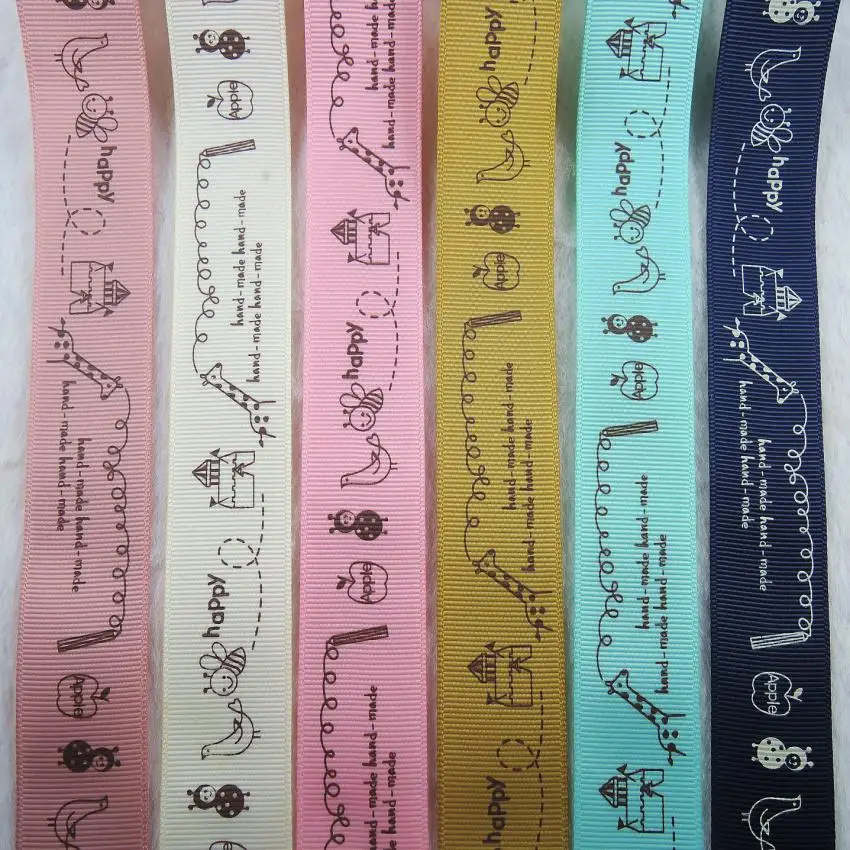 happy
hand-made hand-made
hand-made hand-made
Apple
Apple
hand-made hand-made
hand-made hand-made
happy
hand-made hand
hand-made hand-made
happy
Apple
hand-made hand-made
hand-made
happy
Apple
hand-made hand-made
hand-made hand-made
happy
happy
Apple
hand-made hand-made
hand-made hand-made
happy
hand-made hand-made
hand-made hand-made
Apple